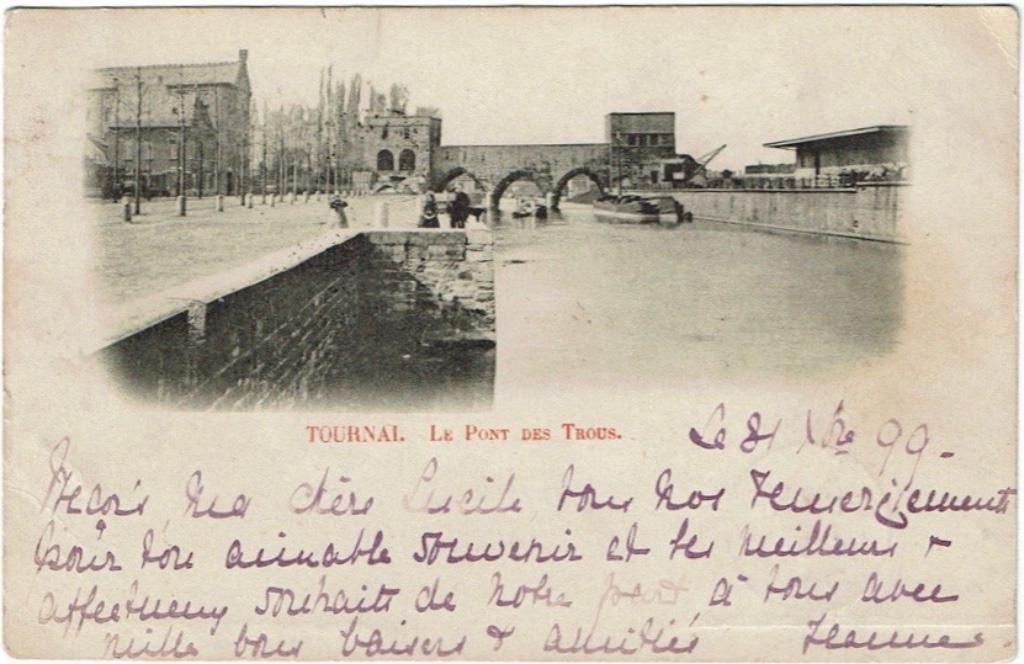 TOURNAI. LE PONT DES TROUS.
Le 31 Xbre 99.
Reçois, Ma chère Lucile, tous nos remerciements
pour ton aimable souvenir et les meilleurs &
affectueux souhaits de notre part à tous avec
mille bons baisers & amitiés Jeanne